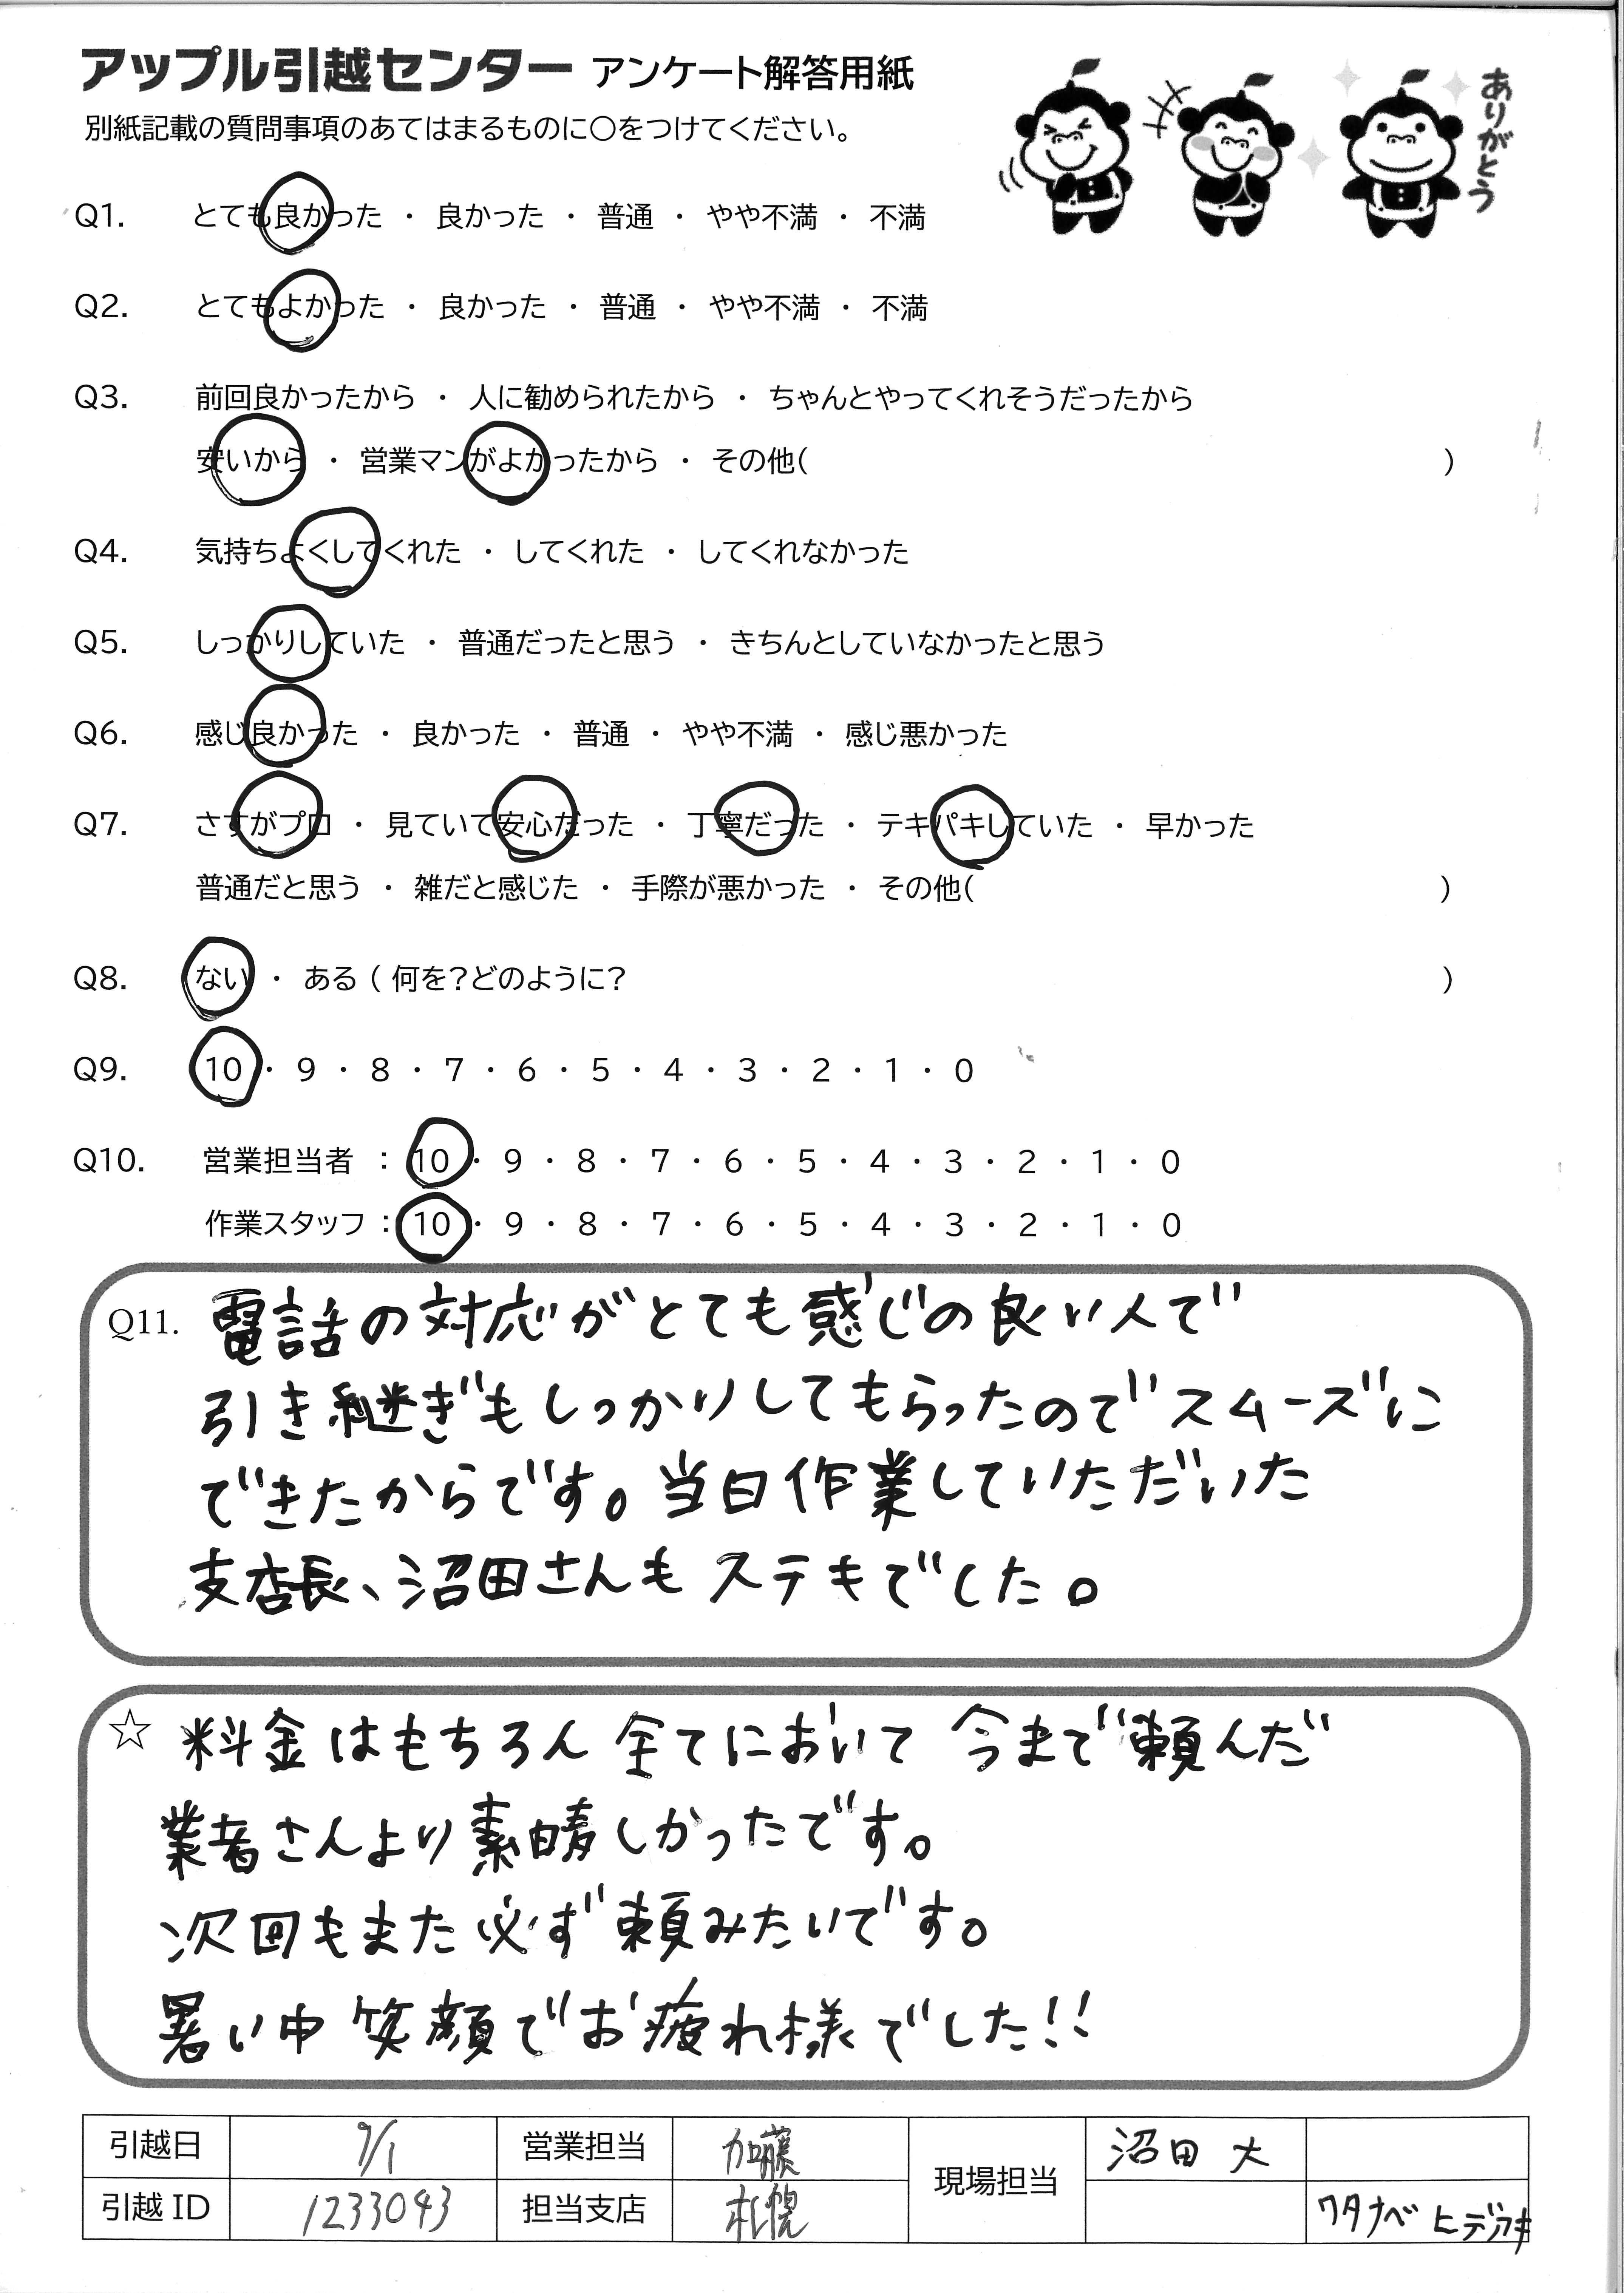 アップル引越センター アンケート解答用紙
別紙記載の質問事項のあてはまるものに○をつけてください。
ありがとう
Q1. とても良かった ・ 良かった ・ 普通 ・ やや不満 ・ 不満
Q2. とてもよかった ・ 良かった ・ 普通 ・ やや不満 ・ 不満
Q3. 前回良かったから ・ 人に勧められたから ・ ちゃんとやってくれそうだったから
安いから ・ 営業マンがよかったから ・ その他( )
Q4. 気持ちよくしてくれた ・ してくれた ・ してくれなかった
Q5. しっかりしていた ・ 普通だったと思う ・ きちんとしていなかったと思う
Q6. 感じ良かった ・ 良かった ・ 普通 ・ やや不満 ・ 感じ悪かった
Q7. さすがプロ ・ 見ていて安心だった ・ 丁寧だった ・ テキパキしていた ・ 早かった
普通だと思う ・ 雑だと感じた ・ 手際が悪かった ・ その他( )
Q8. ない ・ ある ( 何を?どのように? )
Q9. 10 ・ 9 ・ 8 ・ 7 ・ 6 ・ 5 ・ 4 ・ 3 ・ 2 ・ 1 ・ 0
Q10. 営業担当者 : 10 ・ 9 ・ 8 ・ 7 ・ 6 ・ 5 ・ 4 ・ 3 ・ 2 ・ 1 ・ 0
作業スタッフ : 10 ・ 9 ・ 8 ・ 7 ・ 6 ・ 5 ・ 4 ・ 3 ・ 2 ・ 1 ・ 0
Q11. 電話の対応がとても感じの良い人で
引き継ぎもしっかりしてもらったのでスムーズに
できたからです。当日作業していただいた
支店長、沼田さんもステキでした。
☆ 料金はもちろん全てにおいて今まで頼んだ
業者さんより素晴しかったです。
次回もまた必ず頼みたいです。
暑い中笑顔でお疲れ様でした!!
引越日 9/1 営業担当 加藤 現場担当 沼田 大
引越 ID 1233043 担当支店 札幌 ワタナベ ヒデアキ